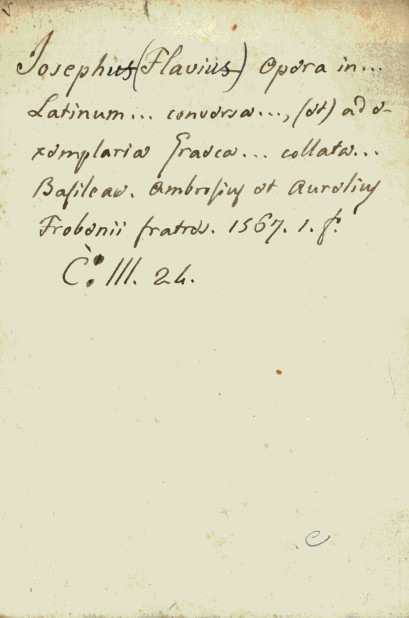 Josephus (Flavius) Opera in...
Latinum... conversa..., (et) ad e-
xemplaria Graeca... collata...
Basileae. Ambrosius et Aurelius
Frobenii fratres. 1567. 1. f.
C. III. 24.
c